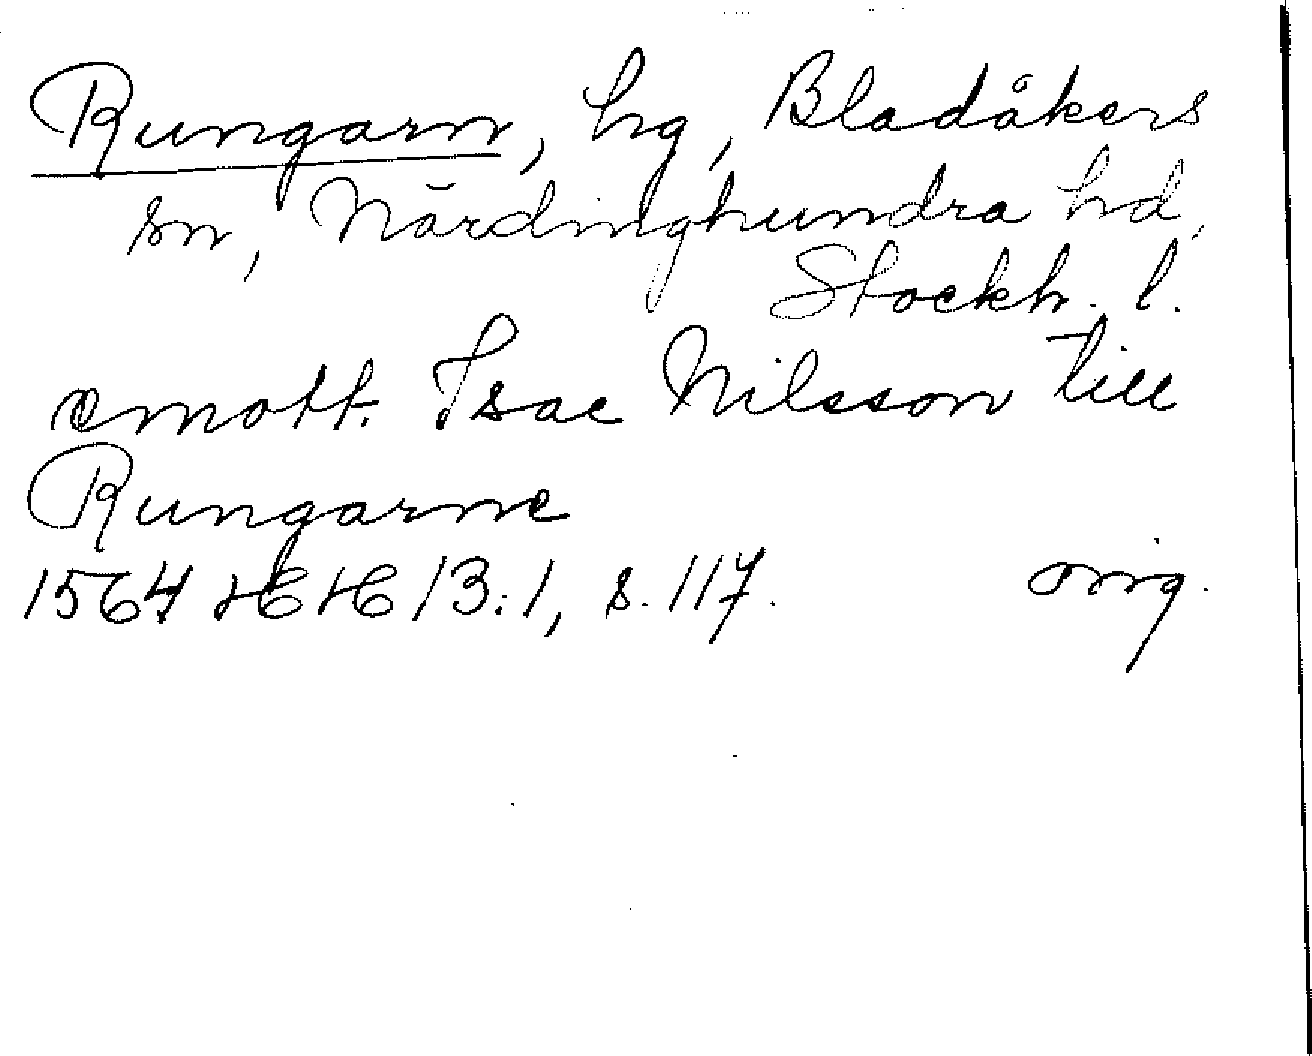 Rungarn, hg, Bladåkers
sn, Närdinghundra hd,
Stockh. l.
emott. Isac Nilsson till
Rungarne
1564 HH 13:1, s. 117. orig.